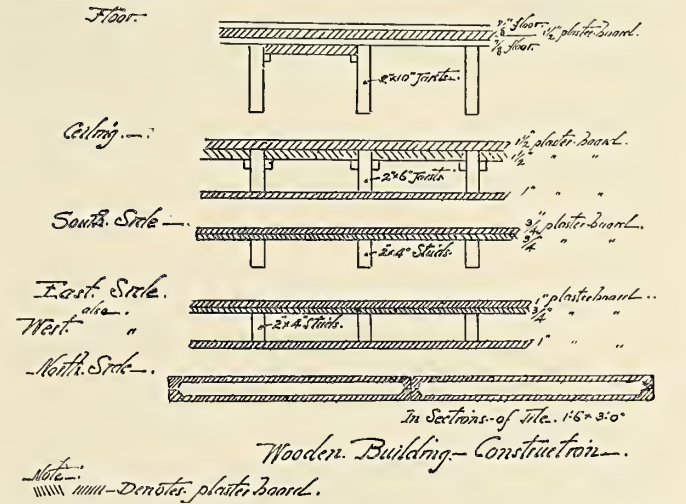 Floor.
7/8" floor.
1 1/2" plaster-board.
7/8 floor.
2"x10" Joists.
Ceiling.—:
1 1/2" plaster-board.
1 1/2" " "
2"x6" Joists
1" " "
South. Side—.
3/4" plaster-board.
3/4 " "
2"x4" Studs.
East. Side.
also.
West. "
1" plasterboard..
3/4" " "
2"x4" Studs.
1" " "
North. Side—.
In Sections-of Tile. 1'.6"x 3'.0"
Wooden. Building.— Construction—.
Note—:
—Denotes. plaster board.